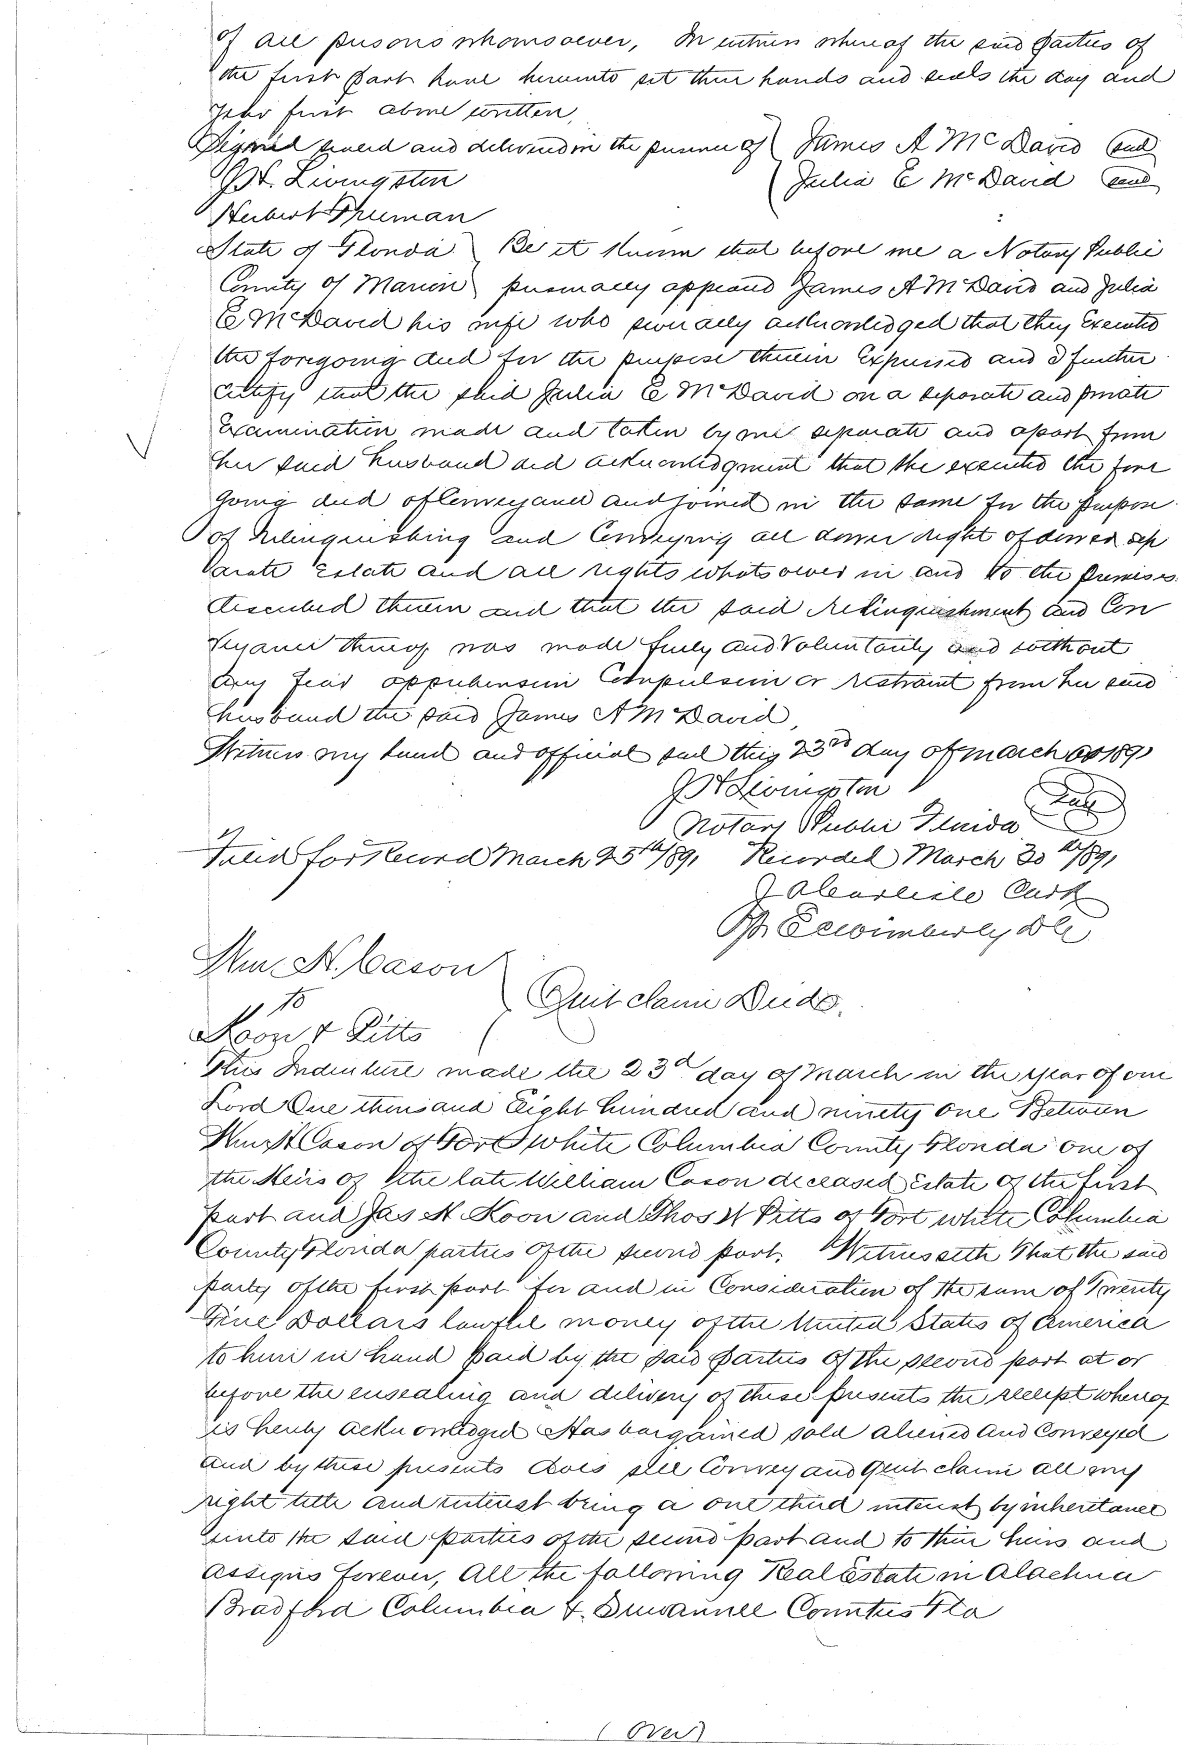 of all persons whomsoever, In witness whereof the said parties of
the first part have hereunto set their hands and seals the day and
year first above written,
Signed sealed and delivered in the presence of James A McDavid seal
J H Livingston Julia E McDavid seal
Herbert Freeman
State of Florida Be it Known that before me a Notary Public
County of Marion personally appeared James A McDavid and Julia
E McDavid his wife who severally acknowledged that they Executed
the foregoing deed for the purpose therein Expressed and I further
certify that the said Julia E McDavid on a separate and private
Examination made and taken by me separate and apart from
her said husband did acknowledgment that she executed the fore
going deed of Conveyance and joined in the same for the purpose
of relinquishing and Conveying all dower right of dower sep
arate Estate and all rights whatsoever in and to the premises
described therein and that the said relinquishment and Con
veyance thereof was made freely and Voluntarily and without
any fear apprehension Compulsion or restraint from her said
husband the said James A McDavid,
Witness my hand and official seal this 23rd day of March AD 1891
J H Livingston
Notary Public Florida Seal
Filed for Record March 25th/891 Recorded March 30th/891
J A Carlisle Clerk
Pr E C Wimberly DC
Wm. H. Cason
to Quit claim Deed.
Koon & Pitts
This Indenture made the 23d day of March in the year of our
Lord One thousand Eight hundred and ninety one Between
Wm H Cason of Fort White Columbia County Florida one of
the Heirs of the late William Cason deceased Estate of the first
part and Jas H Koon and Thos W Pitts of Fort White Columbia
County Florida parties of the second part. Witnesseth That the said
party of the first part for and in Consideration of the sum of Twenty
Five Dollars lawful money of the United States of America
to him in hand paid by the said parties of the second part at or
before the ensealing and delivery of these presents the receipt whereof
is hereby acknowledged Has bargained sold aliened and Conveyed
and by these presents does sell Convey and Quit claim all my
right title and interest being a one third interest by inheritance
unto the said parties of the second part and to their heirs and
assigns forever, All the following Real Estate in Alachua
Bradford Columbia & Suwannee Counties Fla
(Over)